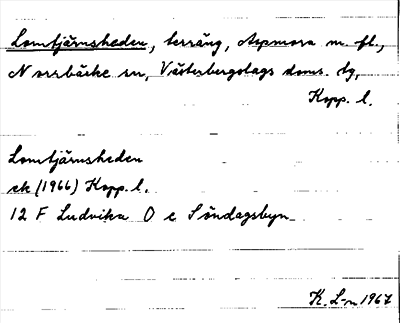 Lomtjärnsheden, terräng, Aspmora m. fl.,
Norrbärke sn, Västerbergslags doms. tg,
Kopp. l.
Lomtjärnsheden
ek (1966) Kopp. l.
12 F Ludvika O c Söndagsbyn
K. L-n 1967